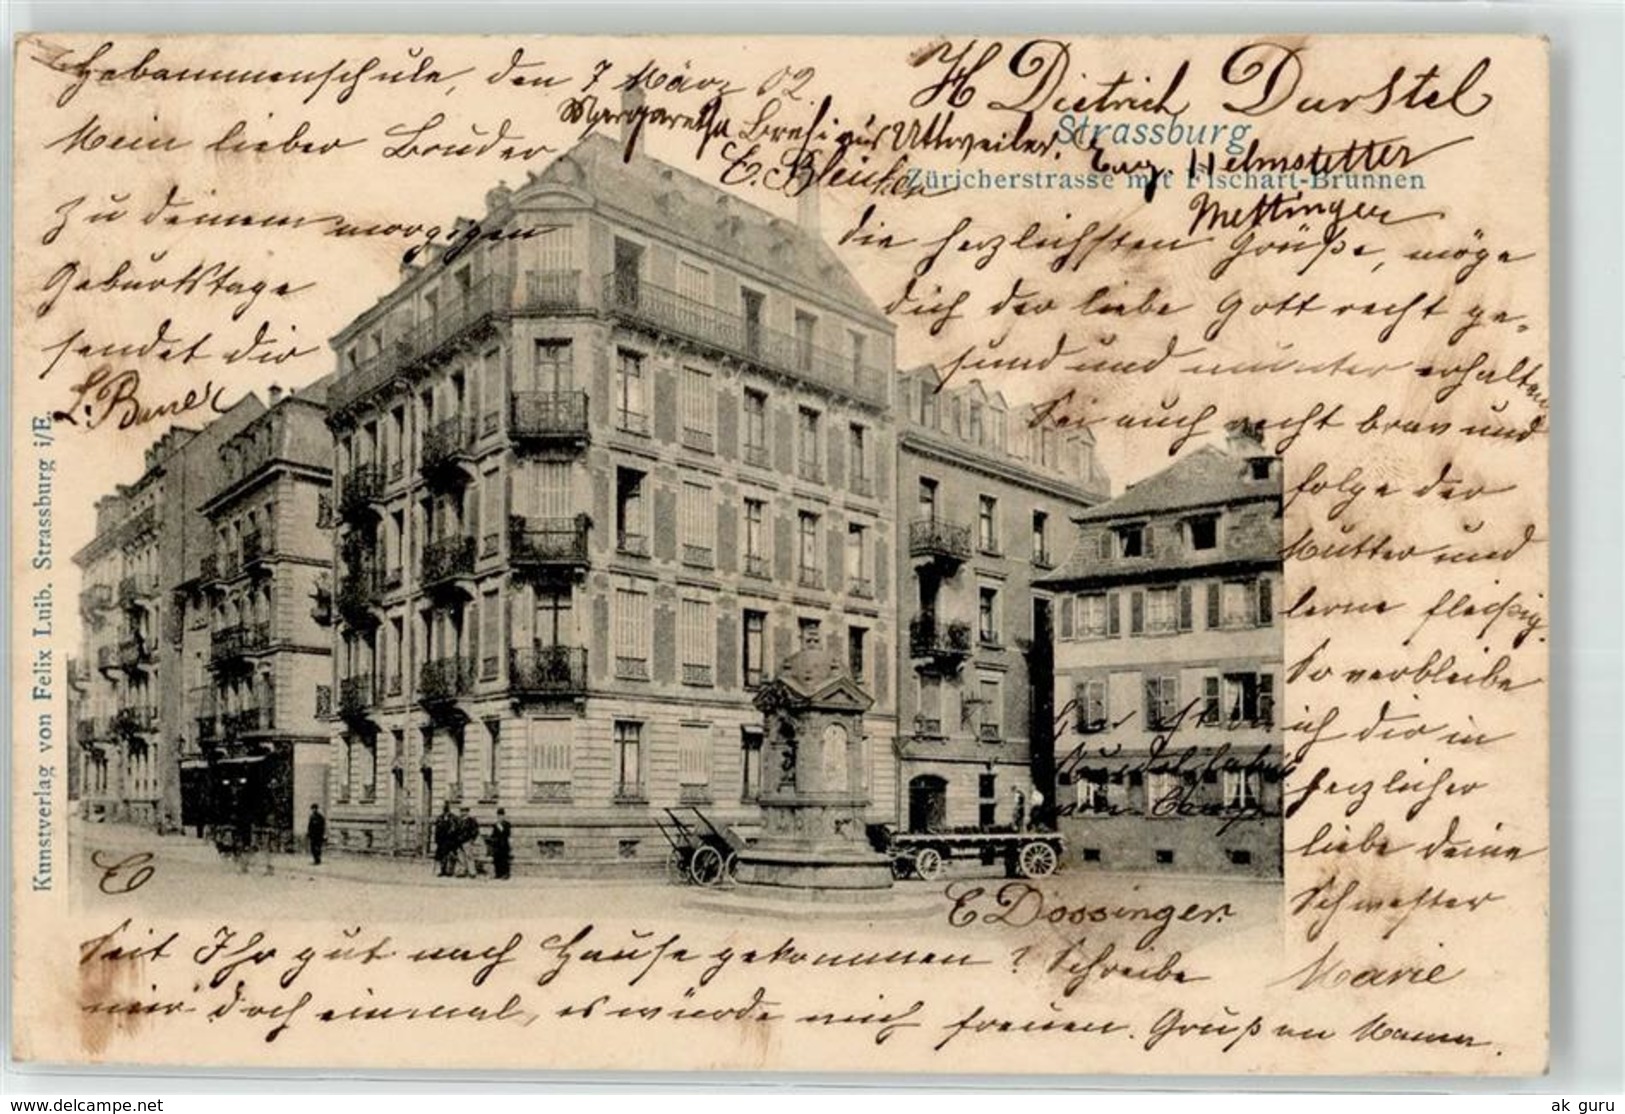 Hebammenschule, den 7 März 02
H Dietrich Durstel
Strassburg
Züricherstrasse mit Fischart-Brunnen
Margaretha aus Uttweiler.
Eug. Helmstetter
E. Bleicher
Mettinger
Mein lieber Bruder
Zu deinem morgigen
Geburtstage
sendet dir
L. Bauer
die herzlichsten Grüße, möge
dich der liebe Gott recht ge-
sund und munter erhalten
Sei auch recht brav und
folge der
Mutter und
lerne fleißig.
So verbleibe
ich dir in
herzlicher
liebe deine
Schwester
Marie
E Dossinger.
Seit Ihr gut nach Hause gekommen? Schreibe
mir doch einmal, es würde mich freuen. Gruß an Mama.
Kunstverlag von Felix Luib. Strassburg i/E.
www.delcampe.net
ak guru